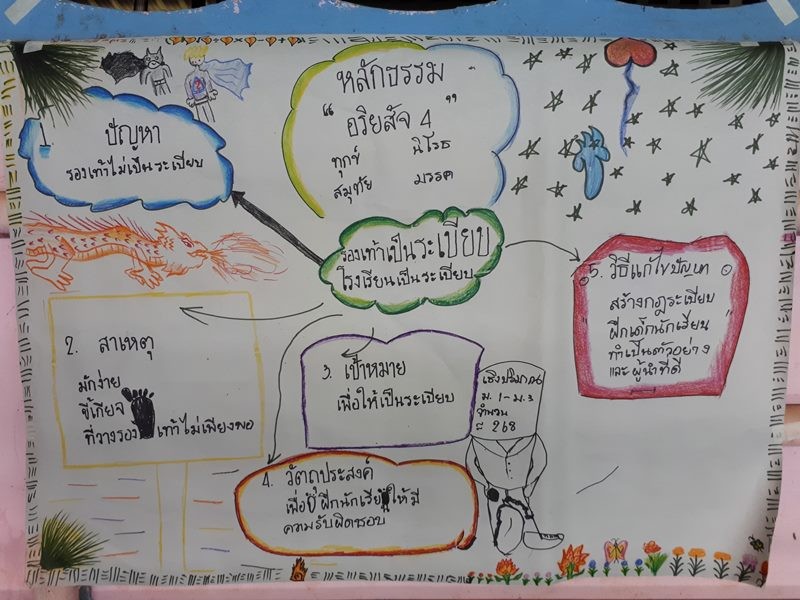 หลักธรรม
“อริยสัจ 4”
ทุกข์ นิโรธ
สมุทัย มรรค
ปัญหา
รองเท้าไม่เป็นระเบียบ
รองเท้าเป็นระเบียบ
โรงเรียนเป็นระเบียบ
2. สาเหตุ
มักง่าย
ขี้เกียจ
ที่วางรองเท้าไม่เพียงพอ
3. เป้าหมาย
เพื่อให้เป็นระเบียบ
4. วัตถุประสงค์
เพื่อฝึกนักเรียนให้มี
ความรับผิดชอบ
เชิงปริมาณ
ม.1-ม.3
จำนวน
268
5. วิธีแก้ไขปัญหา
สร้างกฎระเบียบ
ฝึกเด็กนักเรียน
ทำเป็นตัวอย่าง
และผู้นำที่ดี